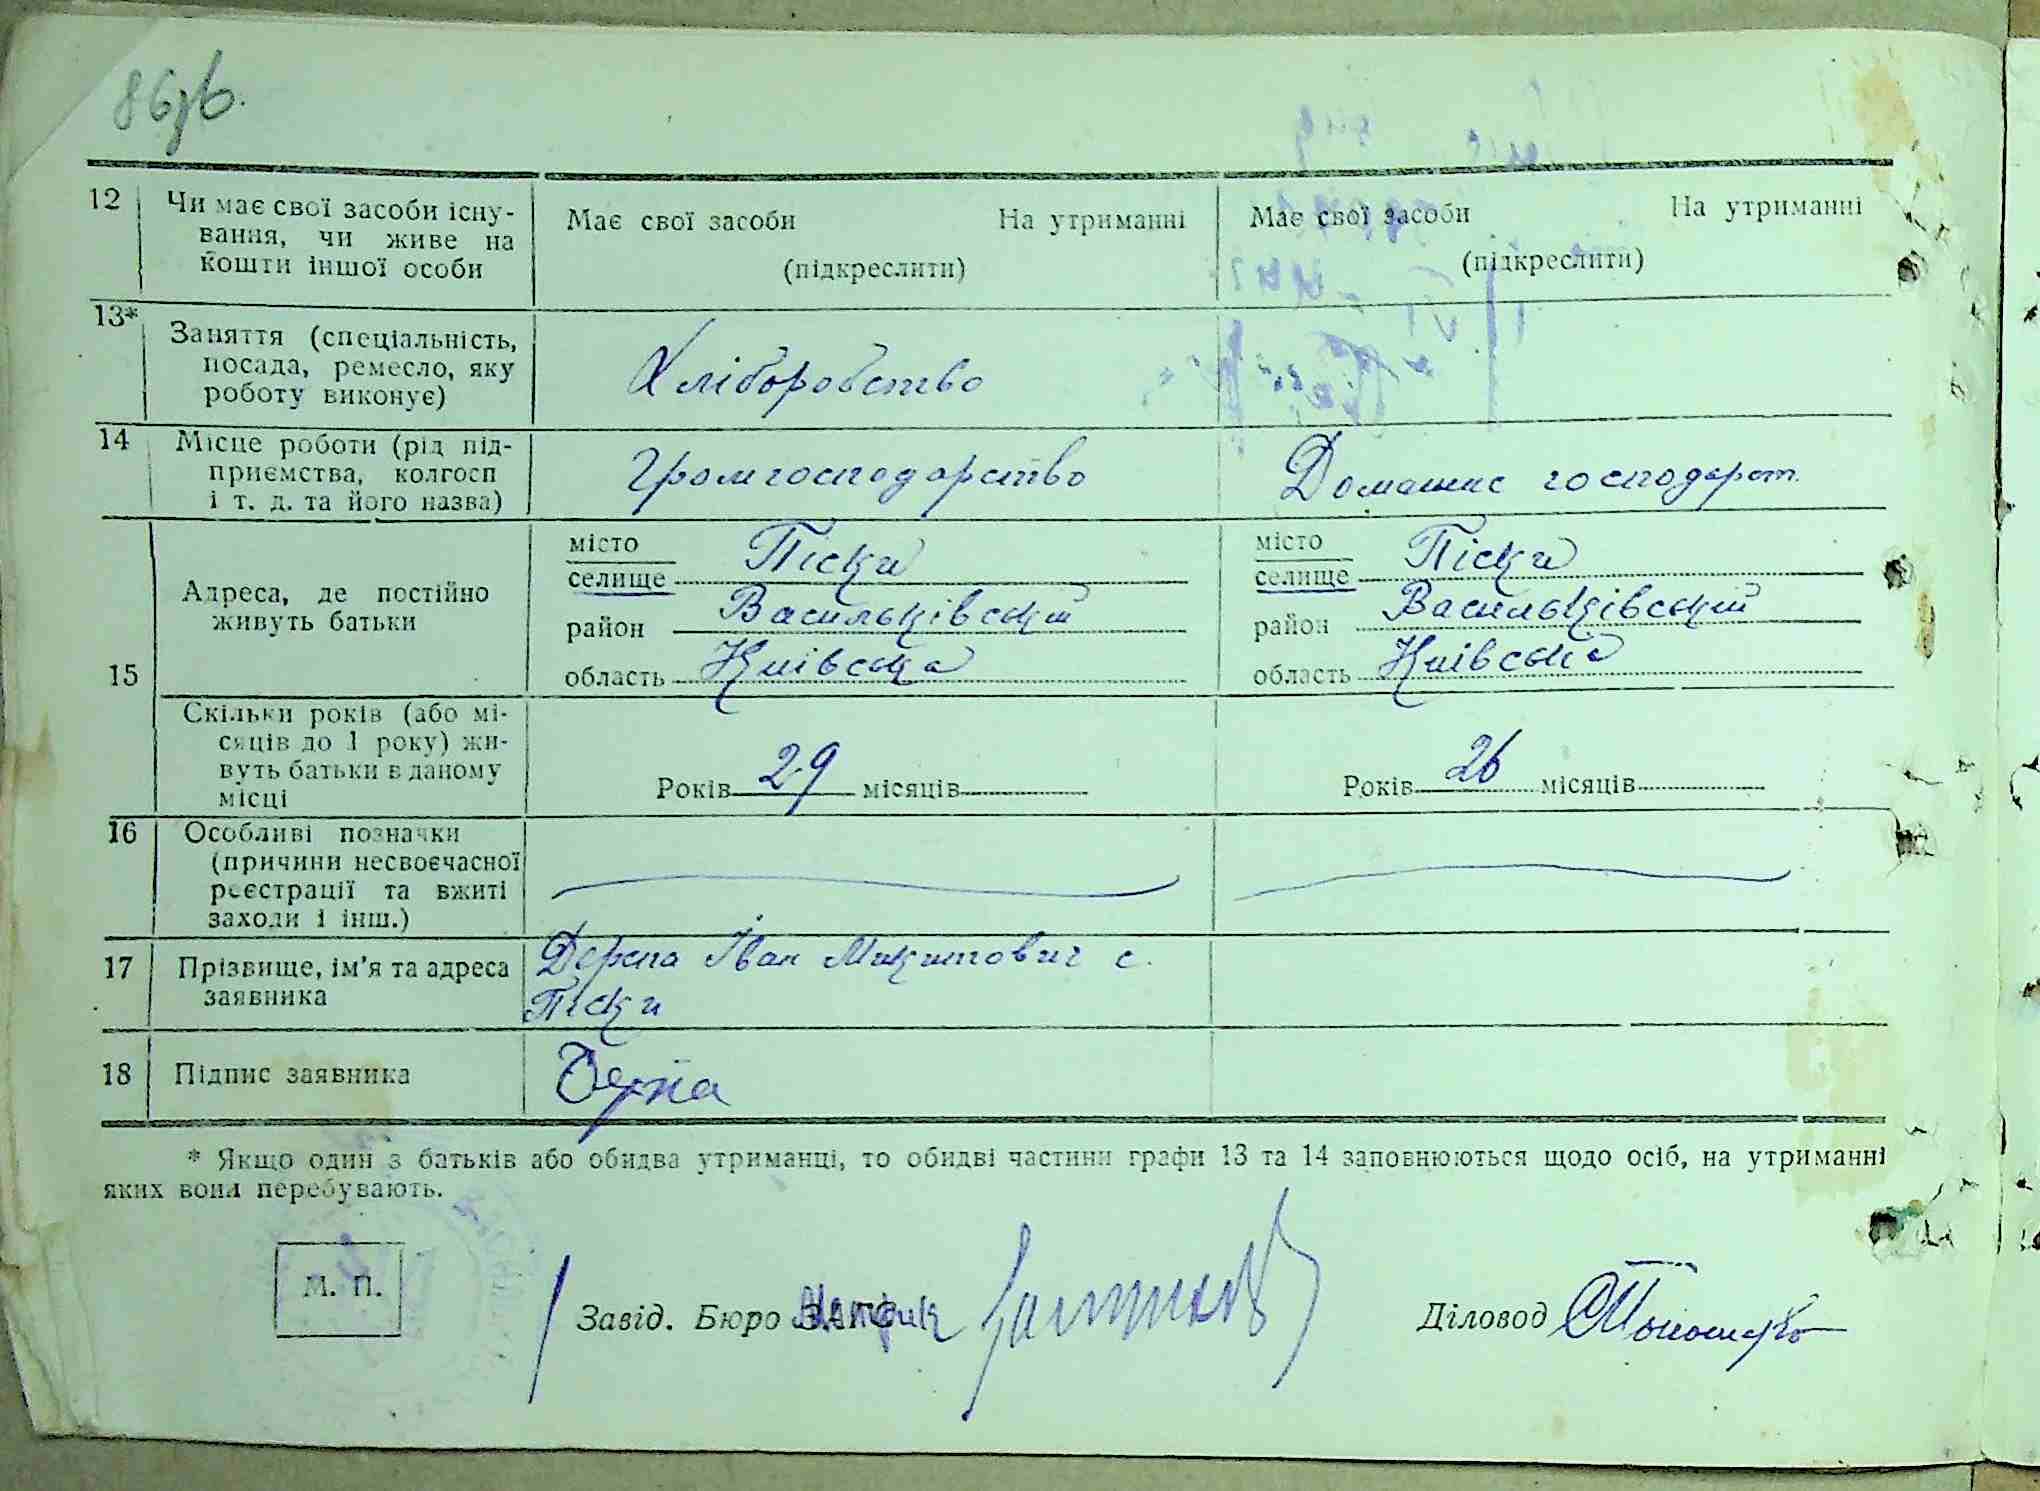 86зв.
12 Чи має свої засоби існу-
вання, чи живе на
кошти іншої особи
Має свої засоби На утриманні
(підкреслити)
Має свої засоби На утриманні
(підкреслити)
13* Заняття (спеціальність,
посада, ремесло, яку
роботу виконує)
Хліборобство
14 Місце роботи (рід під-
приємства, колгосп
і т. д. та його назва)
Громгосподарство
Домашнє господарст.
15 Адреса, де постійно
живуть батьки
місто
селище Піски
район Васильківський
область Київська
місто
селище Піски
район Васильківський
область Київська
Скільки років (або мі-
сяців до 1 року) жи-
вуть батьки в даному
місці
Років 29 місяців
Років 26 місяців
16 Особливі позначки
(причини несвоєчасної
реєстрації та вжиті
заходи і інш.)
17 Прізвище, ім'я та адреса
заявника
Дерепа Іван Микитович с.
Піски
18 Підпис заявника
* Якщо один з батьків або обидва утриманці, то обидві частини графи 13 та 14 заповнюються щодо осіб, на утриманні
яких вони перебувають.
М. П.
Завід. Бюро ЗАГС Метрик
Діловод